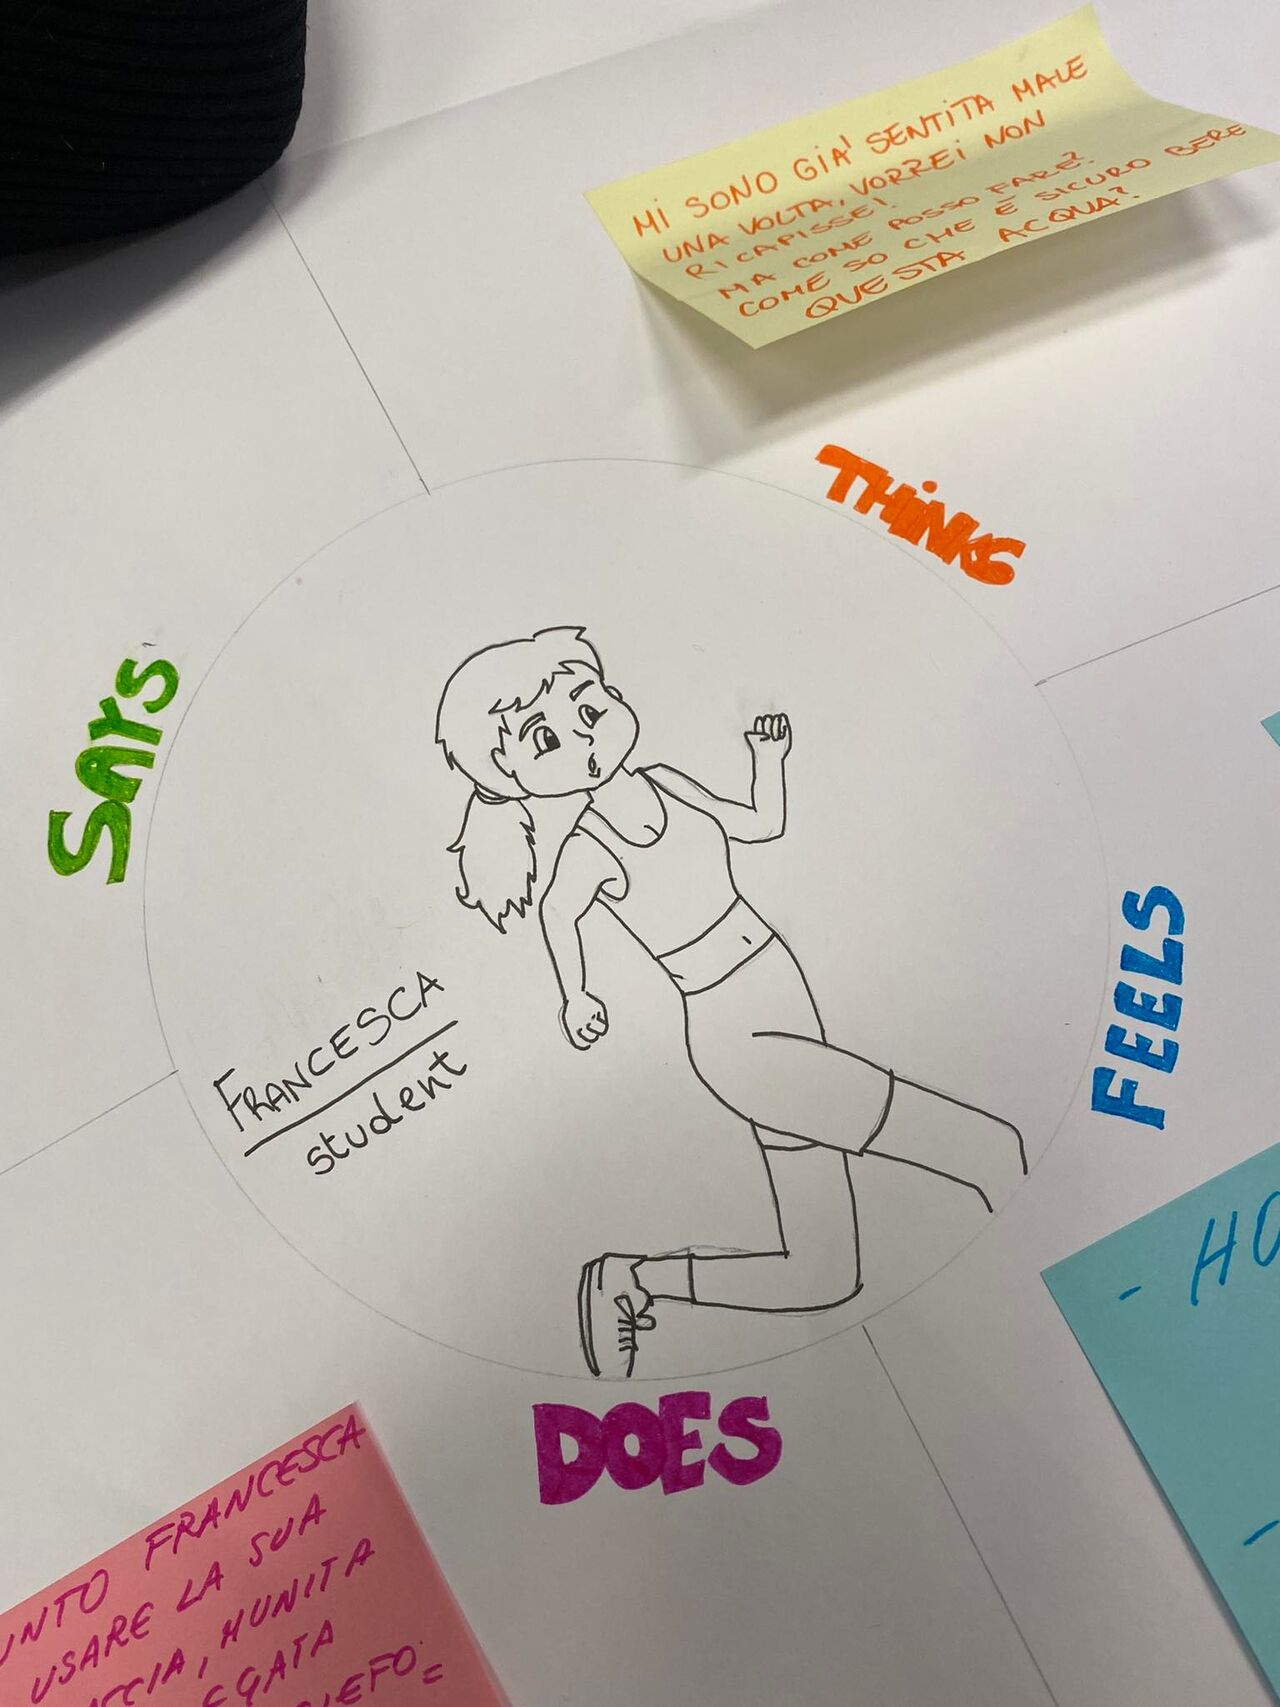 MI SONO GIA' SENTITA MALE
UNA VOLTA, VORREI NON
RICAPISSE!
MA COME POSSO FARE?
COME SO CHE È SICURO BERE
QUESTA ACQUA?
THINKS
SAYS
FEELS
FRANCESCA
student
DOES
- HO
-
FRANCESCA
USARE LA SUA
, MUNITA